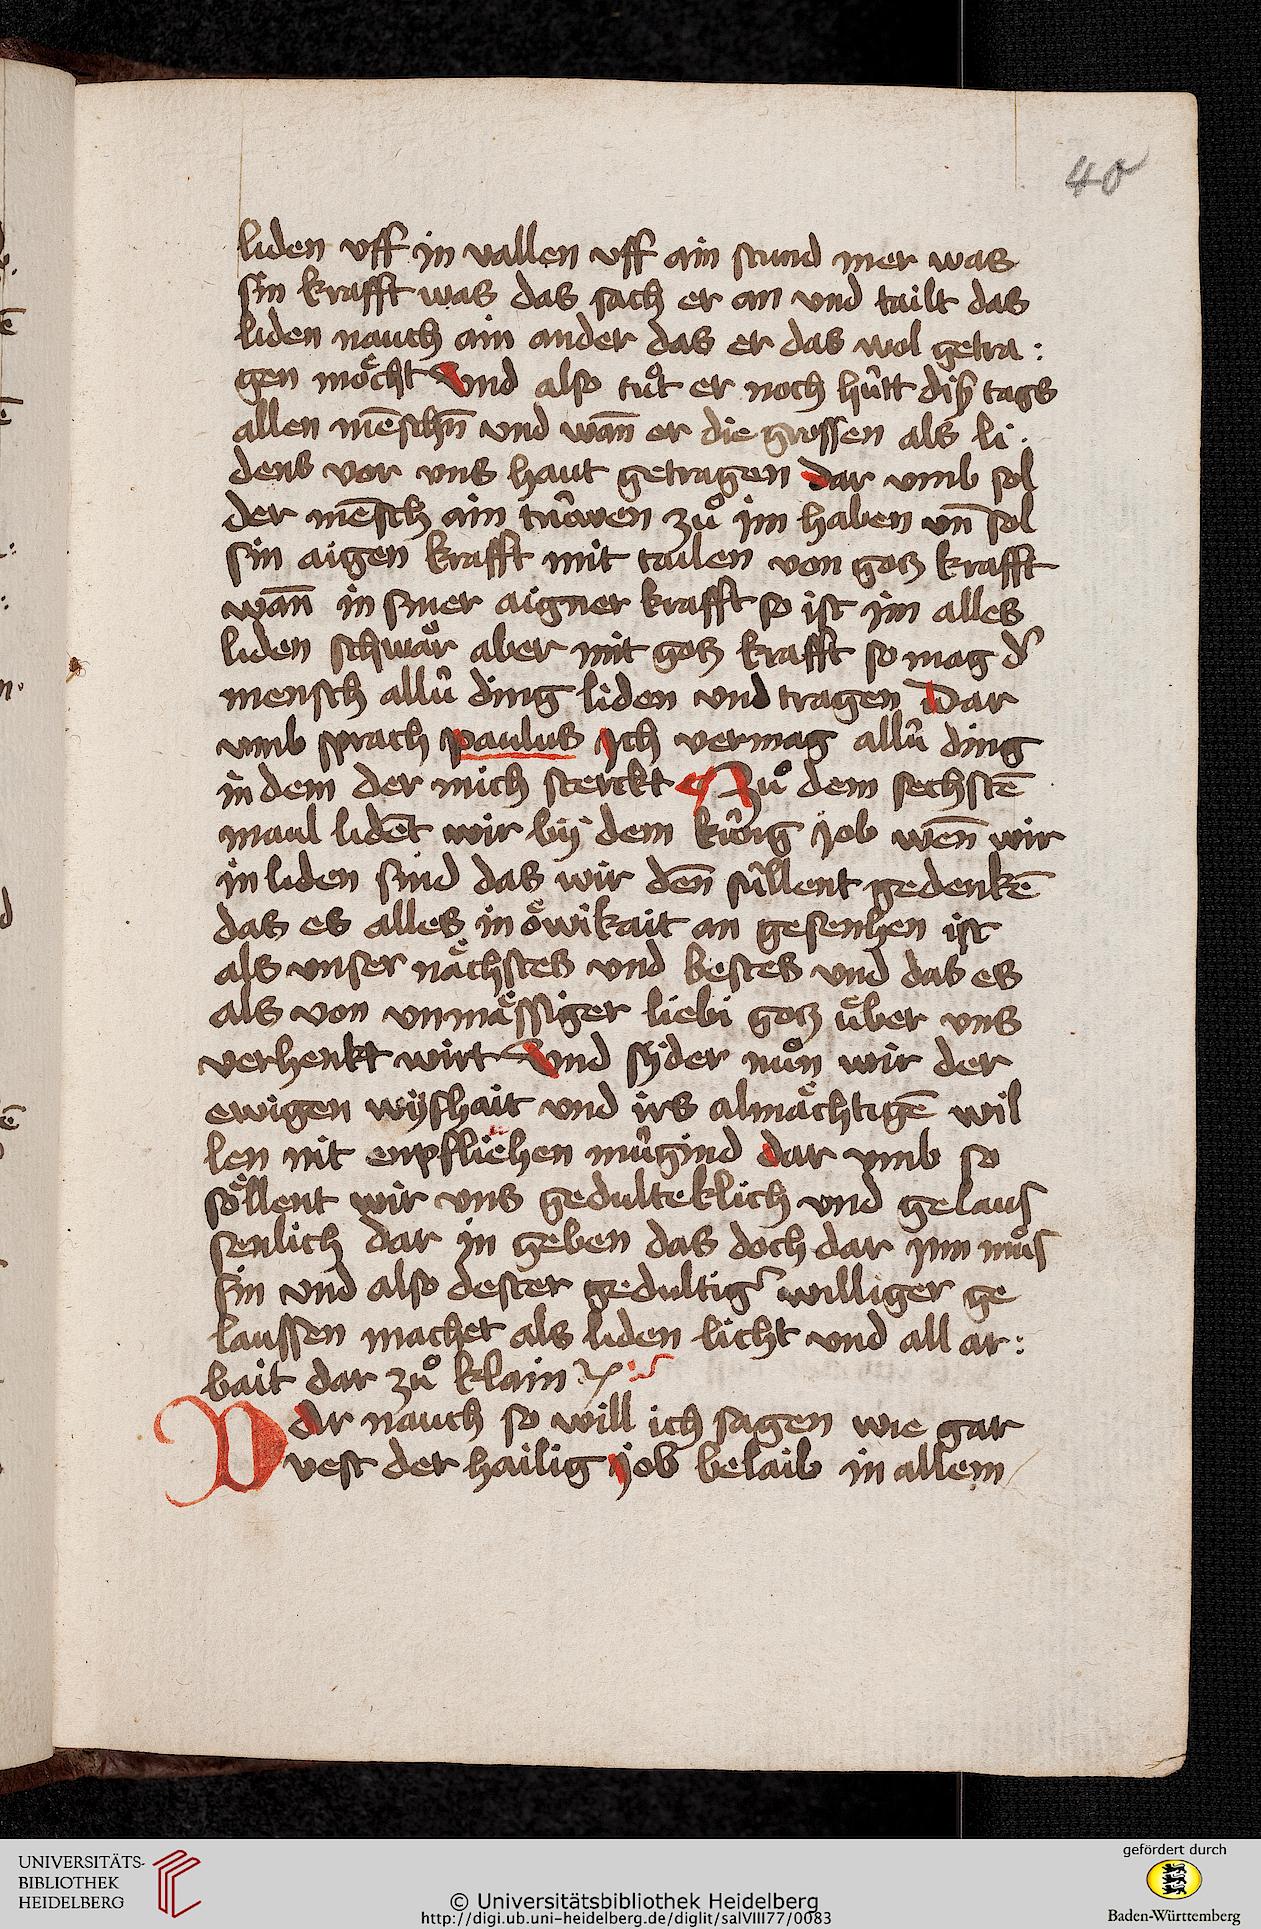 40
liden vff in vallen vff ain stund mer was
sin krafft was das sach er an vnd tailt das
liden nauch ain ander das er das wol getra :
gen moͤcht Vnd also tuͦt er noch huͤtt diß tags
allen mēschn̄ vnd wan̄ er die grossen als li .
dens vor vns haut getragen dar vmb sol
der mēsch ain truͤwen zuͦ im haben vn̄ sol
sin aigen krafft mit tailen von gotz krafft
wan̄ in siner aigner krafft so ist im alles
liden schwaͤr aber mit gotz krafft so mag d'
mensch alluͤ ding liden vnd tragen Dar
vmb sprach paulus Ich vermag alluͤ ding
in dem der mich sterckt Zuͦ dem sechstē
maul lidēt wir bÿ dem kuͤnig Job wen̄ wir
in liden sind das wir den̄ suͤllent gedenkē
das es alles in oͤwikait an gesenhen ist
als vnser naͤchstes vnd bestes vnd das es
als von vnmaͤssiger liebi gotz uͤber vns
verhenkt wirt Vnd sÿder nuͦn wir der
ewigen wÿshait vnd irs almaͤchtigē wil
len nit enpfliehen muͤgind dar vmb so
soͤllent wir vns gedulteklich vnd gelaus
senlich dar in geben das doch dar inn muͦs
sin vnd also dester gedultig' williger ge
laussen machet als liden licht vnd all ar :
bait dar zuͦ klain
Dar nauch so will ich sagen wie gar
vest der hailig Job belaib in allem
UNIVERSITÄTS-
BIBLIOTHEK
HEIDELBERG
© Universitätsbibliothek Heidelberg
http://digi.ub.uni-heidelberg.de/diglit/salVIII77/0083
gefördert durch
Baden-Württemberg